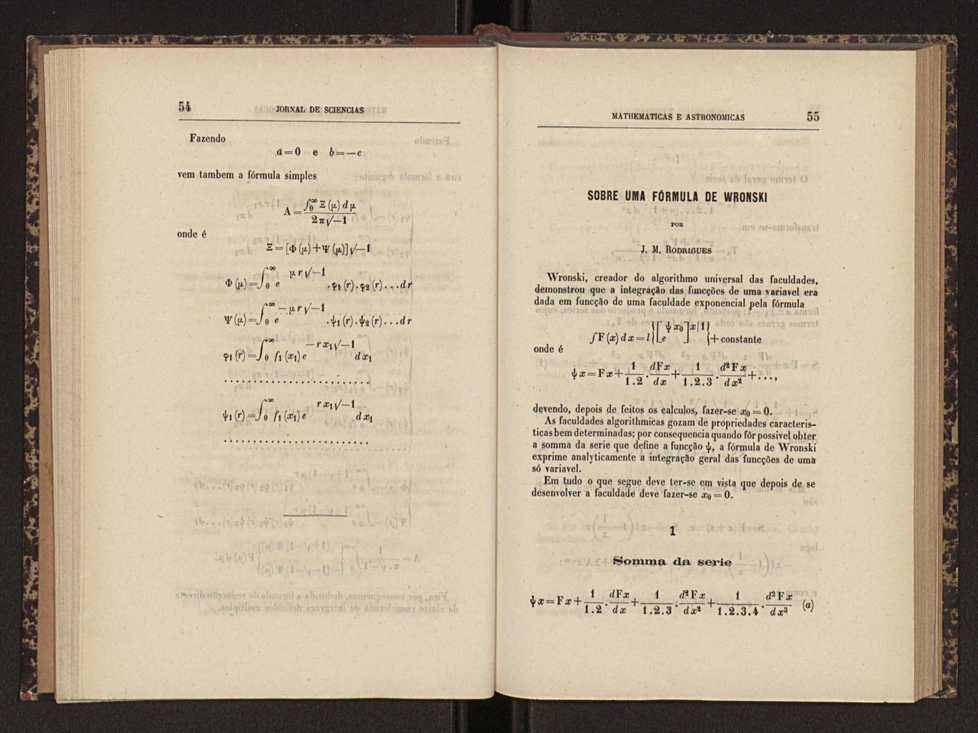 54
JORNAL DE SCIENCIAS
Fazendo
a=0 e b=—c
vem tambem a fórmula simples
A = ∫₀^∞ Ξ(μ) dμ / 2π√—1
onde é
Ξ = [Φ(μ)+Ψ(μ)]√—1
Φ(μ) = ∫₀^∞ e^{μr√—1} .φ₁(r).φ₂(r)...dr
Ψ(μ) = ∫₀^∞ e^{—μr√—1} .ψ₁(r).ψ₂(r)...dr
φ₁(r) = ∫₀^∞ f₁(x₁) e^{—rx₁√—1} dx₁
. . . . . . . . . . . . . . . . . . . . . . . .
ψ₁(r) = ∫₀^∞ f₁(x₁) e^{rx₁√—1} dx₁
. . . . . . . . . . . . . . . . . . . . . . . .
MATHEMATICAS E ASTRONOMICAS
55
SOBRE UMA FÓRMULA DE WRONSKI
POR
J. M. RODRIGUES
Wronski, creador do algorithmo universal das faculdades,
demonstrou que a integração das funcções de uma variavel era
dada em funcção de uma faculdade exponencial pela fórmula
∫F(x)dx = l{[e^{ψx₀}]^{x|1}} + constante
onde é
ψx = Fx + 1/1.2 . dFx/dx + 1/1.2.3 . d²Fx/dx² + ...,
devendo, depois de feitos os calculos, fazer-se x₀ = 0.
As faculdades algorithmicas gozam de propriedades caracteris-
ticas bem determinadas; por consequencia quando fôr possivel obter
a somma da serie que define a funcção ψ, a fórmula de Wronski
exprime analyticamente a integração geral das funcções de uma
só variavel.
Em tudo o que segue deve ter-se em vista que depois de se
desenvolver a faculdade deve fazer-se x₀ = 0.
1
Somma da serie
ψx = Fx + 1/1.2 . dFx/dx + 1/1.2.3 . d²Fx/dx² + 1/1.2.3.4 . d³Fx/dx³ (a)